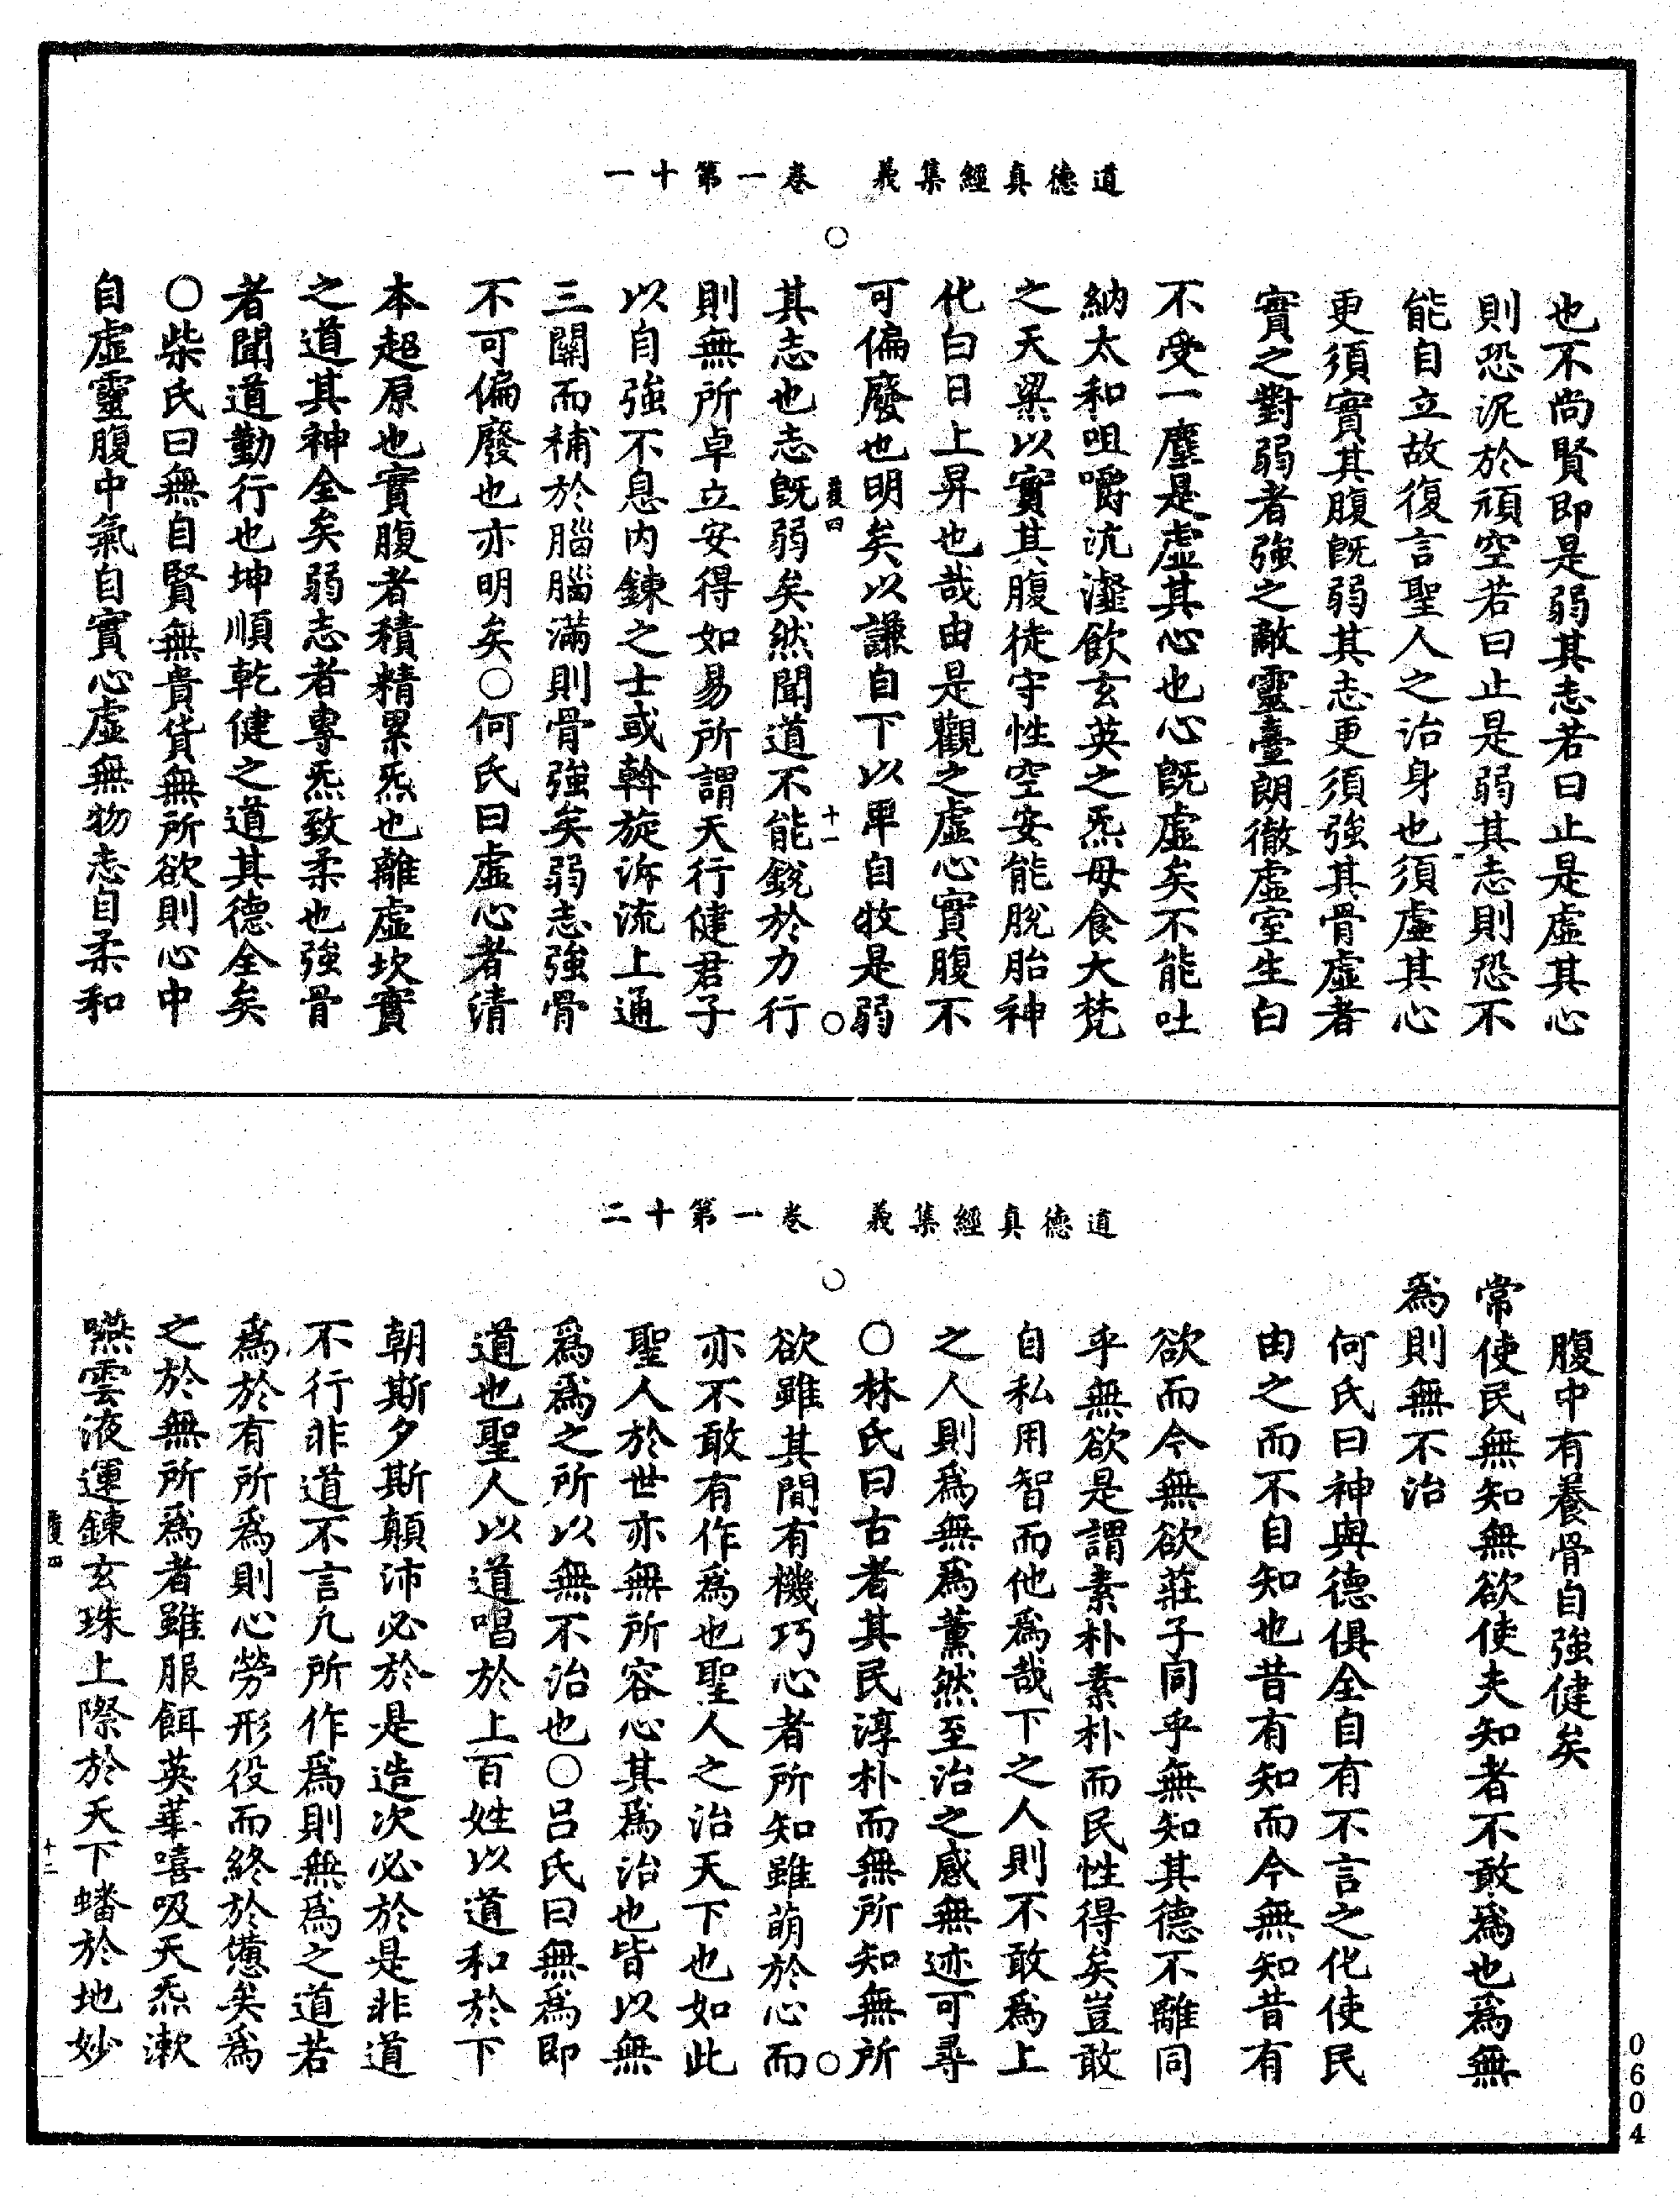 道德真經集義　卷一第十一
也不尚賢即是弱其志若曰止是虛其心
則恐泥於頑空若曰止是弱其志則恐不
能自立故復言聖人之治身也須虛其心
更須實其腹旣弱其志更須強其骨虛者
實之對弱者強之敵靈臺朗徹虛室生白
不受一塵是虛其心也心旣虛矣不能吐
納太和咀嚼沆瀣飲玄英之炁母食大梵
之天粱以實其腹徒守性空安能脫胎神
化白日上昇也哉由是觀之虛心實腹不
可偏廢也明矣以謙自下以卑自牧是弱
十一
其志也志旣弱矣然聞道不能銳於力行
則無所卓立安得如易所謂天行健君子
以自強不息內鍊之士或斡旋泝流上通
三關而補於腦腦滿則骨強矣弱志強骨
不可偏廢也亦明矣○何氏曰虛心者清
本超原也實腹者積精累炁也離虛坎實
之道其神全矣弱志者專炁致柔也強骨
者聞道勤行也坤順乾健之道其德全矣
○柴氏曰無自賢無貴貨無所欲則心中
自虛靈腹中氣自實心虛無物志自柔和
道德真經集義　卷一第十二
腹中有養骨自強健矣
常使民無知無欲使夫知者不敢為也為無
為則無不治
何氏曰神與德俱全自有不言之化使民
由之而不自知也昔有知而今無知昔有
欲而今無欲莊子同乎無知其德不離同
乎無欲是謂素朴素朴而民性得矣豈敢
自私用智而他為哉下之人則不敢為上
之人則為無為薰然至治之感無迹可尋
○林氏曰古者其民淳朴而無所知無所
欲雖其間有機巧心者所知雖萌於心而
亦不敢有作為也聖人之治天下也如此
聖人於世亦無所容心其為治也皆以無
為為之所以無不治也○呂氏曰無為即
道也聖人以道唱於上百姓以道和於下
朝斯夕斯顛沛必於是造次必於是非道
不行非道不言凢所作為則無為之道若
為於有所為則心勞形役而終於憊矣為
之於無所為者雖服餌英華嘻吸天炁漱
嚥雲液運鍊玄珠上際於天下蟠於地妙
十二
0604